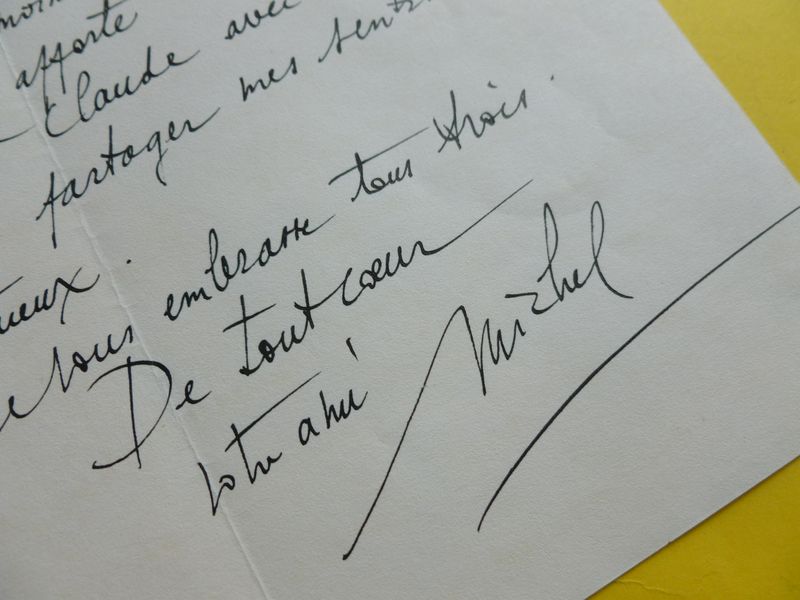 apporte
Claude avec
partager mes senti
ueux.
vous embrasse tous trois.
De tout cœur
votre ami
Michel